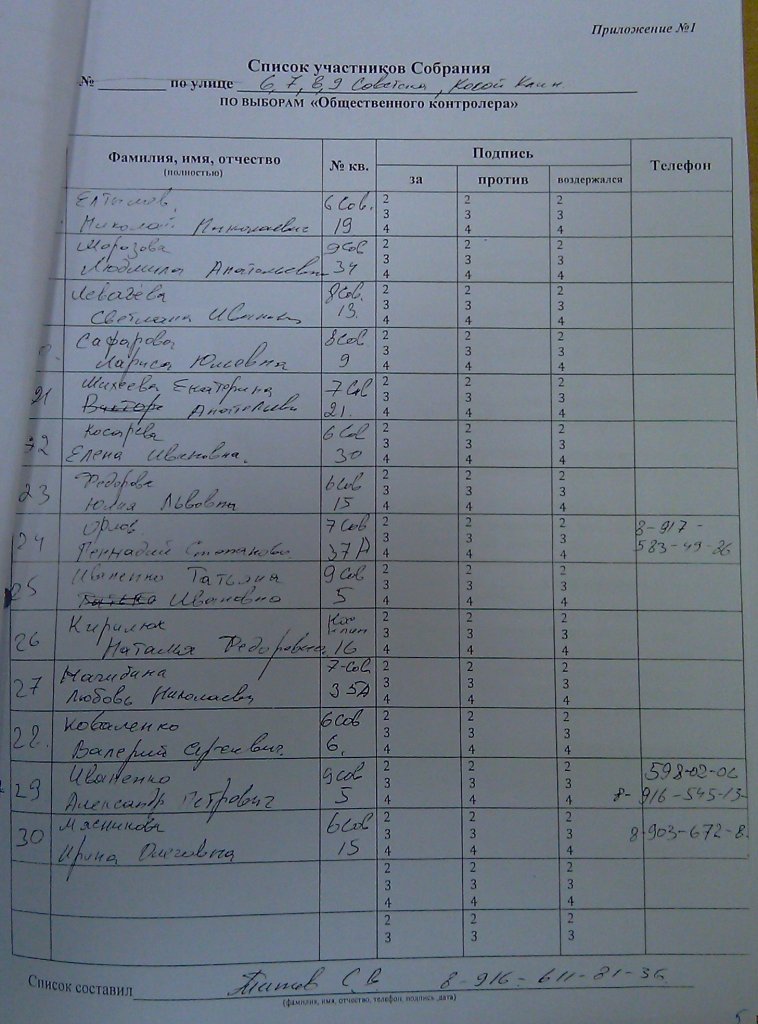 Приложение №1
Список участников Собрания
№ по улице 6, 7, 8, 9 Советская, Косой Клин
ПО ВЫБОРАМ «Общественного контролера»
Фамилия, имя, отчество (полностью) № кв. Подпись Телефон
за против воздержался
6 Сов. 2 2 2
3 3 3
Николай Николаевич 19 4 4 4
Морозова 9 Сов 2 2 2
3 3 3
Людмила Анатольевн 34 4 4 4
Левачёва 8 Сов. 2 2 2
3 3 3
Светлана Ивановн 13. 4 4 4
Сафарова 8 Сов 2 2 2
3 3 3
Лариса Юлиевна 9 4 4 4
21 Михеева Екатерина 7 Сов 2 2 2
3 3 3
Анатольевн 21. 4 4 4
22 Косарева 6 Сов 2 2 2
3 3 3
Елена Ивановна. 30 4 4 4
23 Федорова 6 Сов 2 2 2
3 3 3
Юлия Львовна 15 4 4 4
24 Орлов 7 Сов 2 2 2 8-917-
3 3 3
Геннадий Степанович 37А 4 4 4 583-49-26
25 Иваненко Татьяна 9 Сов 2 2 2
3 3 3
Ивановна 5 4 4 4
26 Кирилюк 2 2 2
3 3 3
Наталья Федоровна 16 4 4 4
27 Нагибина 7-Сов 2 2 2
3 3 3
Любовь Николаевн 35А 4 4 4
28. Коваленко 6 Сов 2 2 2
3 3 3
Валерий Сергеевич. 6. 4 4 4
29 Иваненко 9 Сов 2 2 2 598-02-06
3 3 3
Александр Петрович 5 4 4 4 8-916-545-13-
30 Мясникова 6 Сов 2 2 2
3 3 3 8-903-672-8
Ирина Олеговна 15 4 4 4
2 2 2
3 3 3
4 4 4
2 2 2
3 3 3
Список составил Титов С.В 8-916-611-81-36
(фамилия, имя, отчество, телефон, подпись, дата)
5